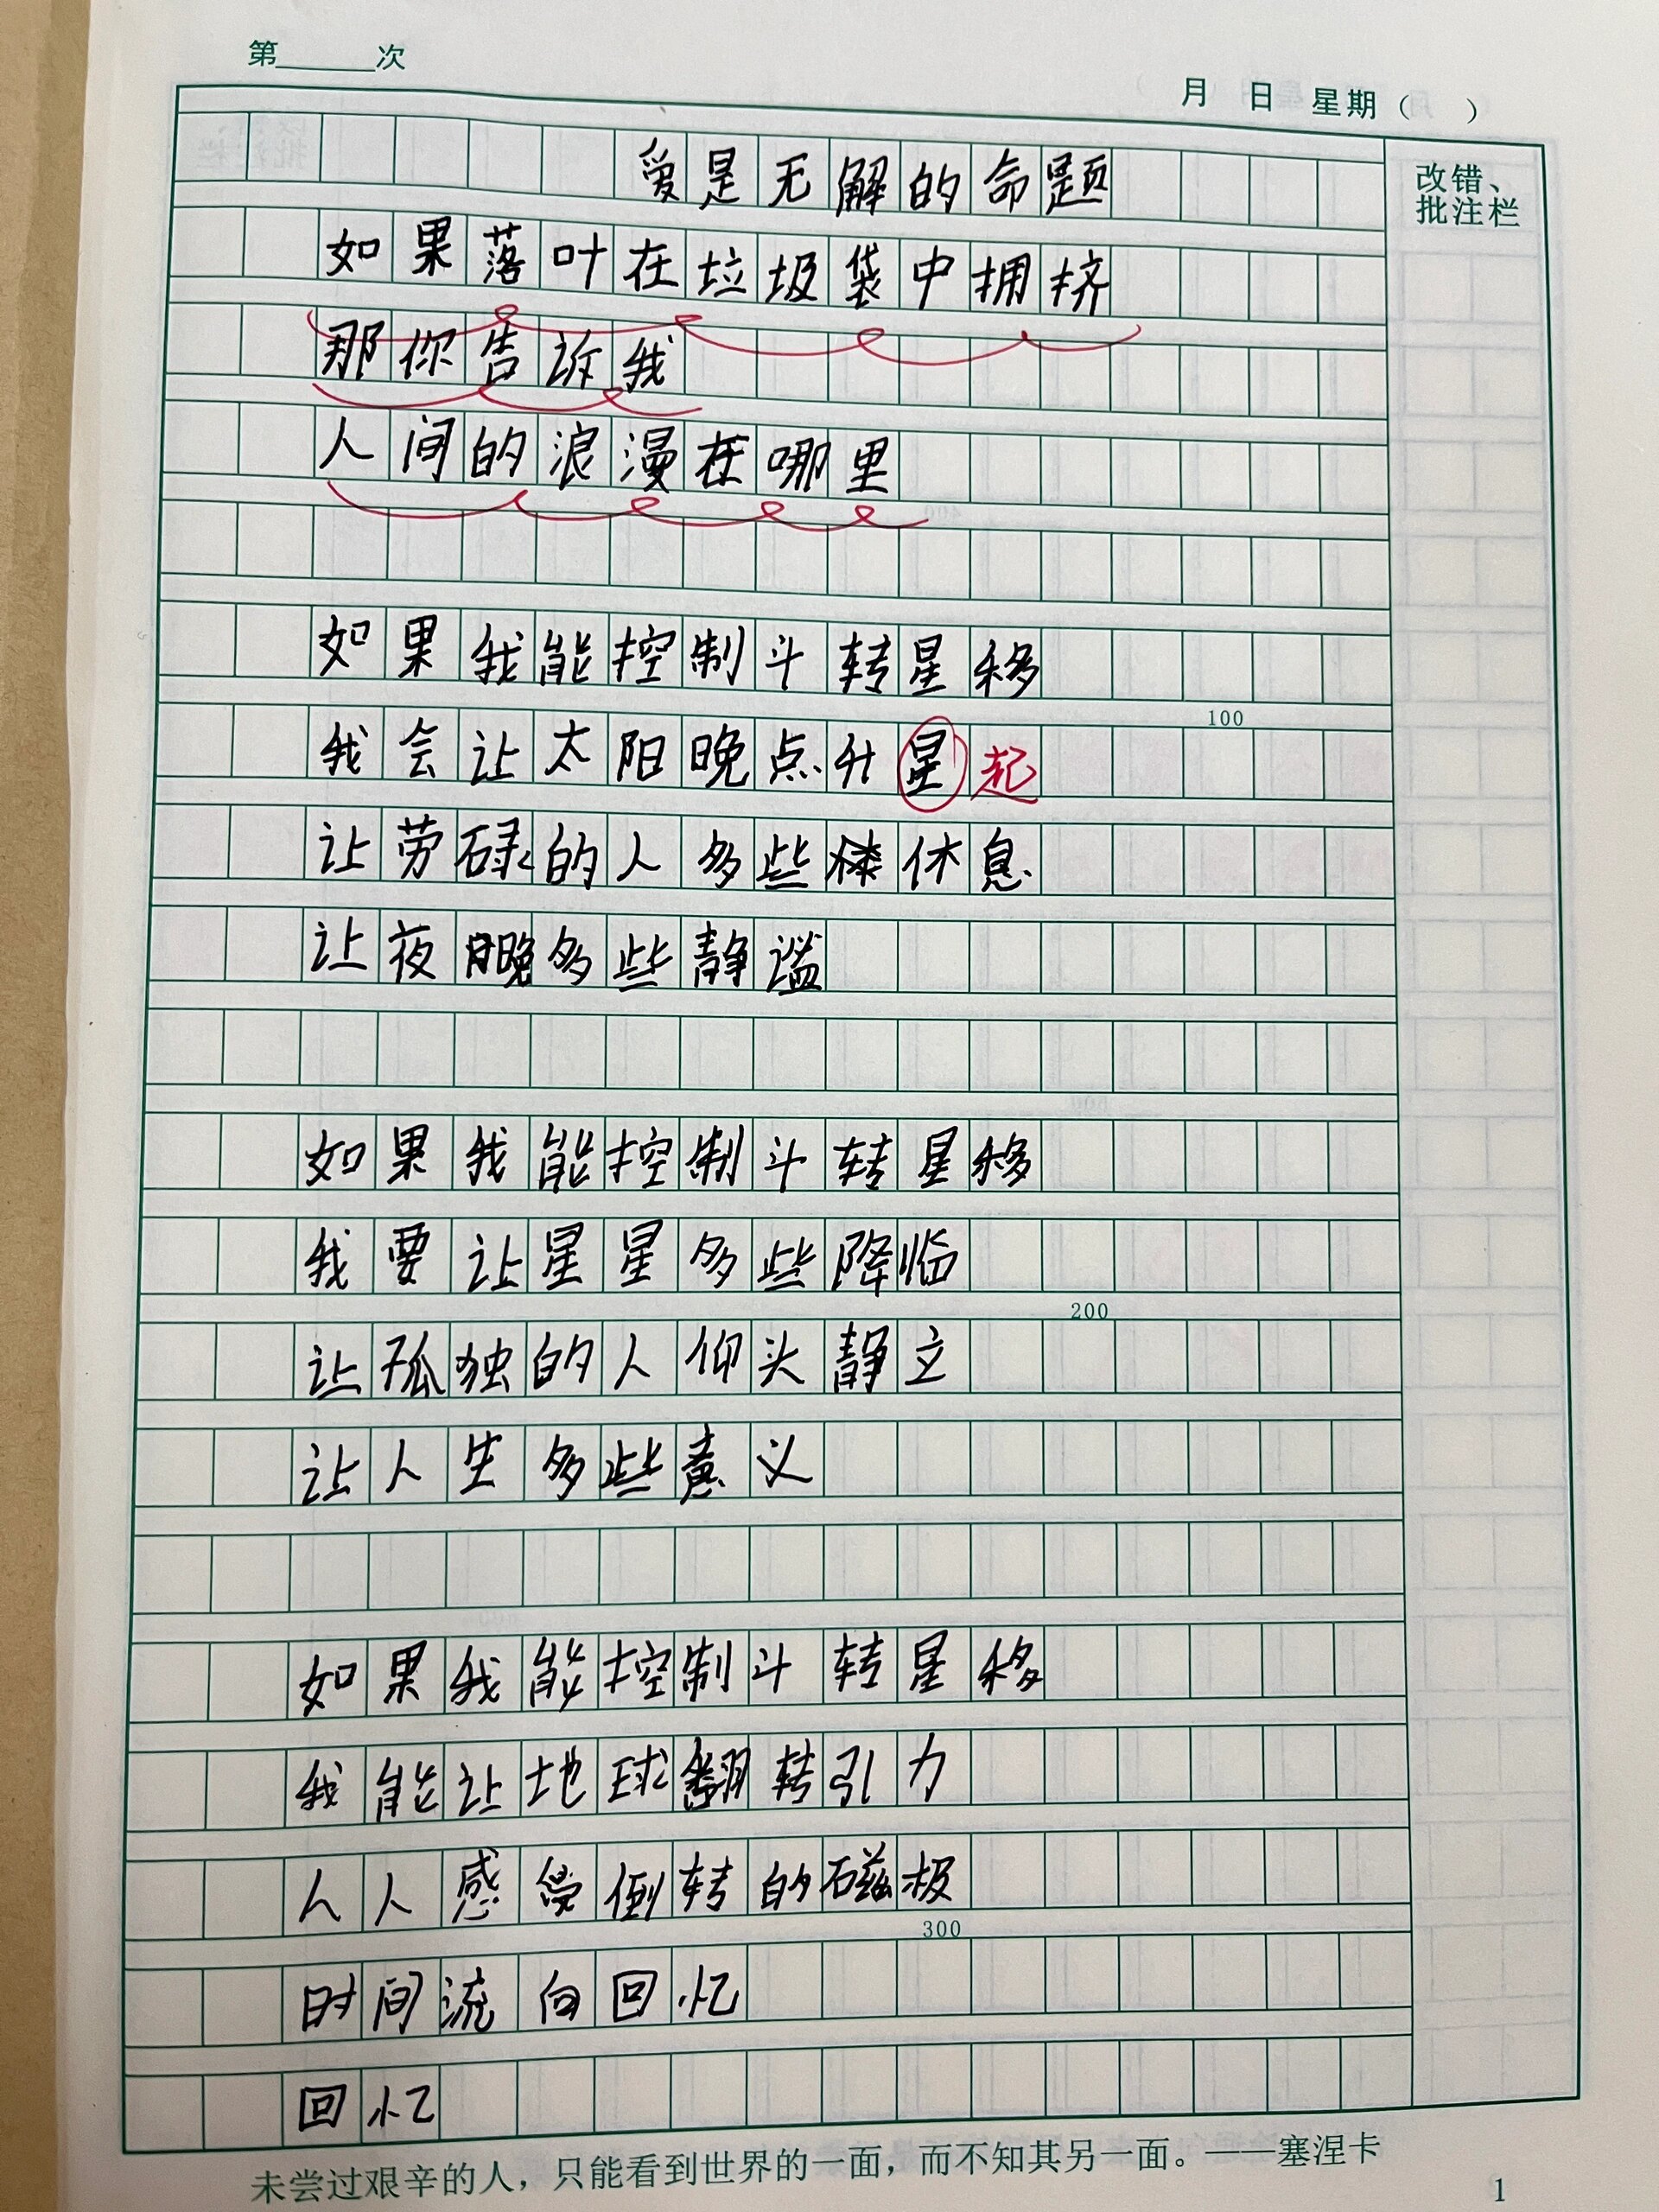 第______次
月 日 星期（ ）
改错、
批注栏
爱是无解的命题
如果落叶在垃圾袋中拥挤
那你告诉我
人间的浪漫在哪里
如果我能控制斗转星移
100
我会让太阳晚点升星起
让劳碌的人多些休息
让夜晚多些静谧
如果我能控制斗转星移
我要让星星多些降临
200
让孤独的人仰头静立
让人生多些意义
如果我能控制斗转星移
我能让地球翻转引力
人人感觉倒转的磁极
300
时间流向回忆
回忆
未尝过艰辛的人，只能看到世界的一面，而不知其另一面。——塞涅卡
1